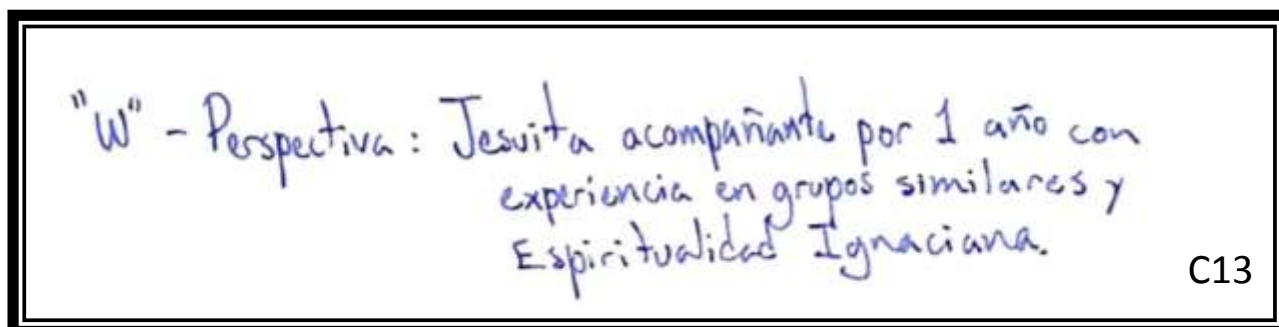 "W" - Perspectiva: Jesuita acompañante por 1 año con
experiencia en grupos similares y
Espiritualidad Ignaciana.
C13